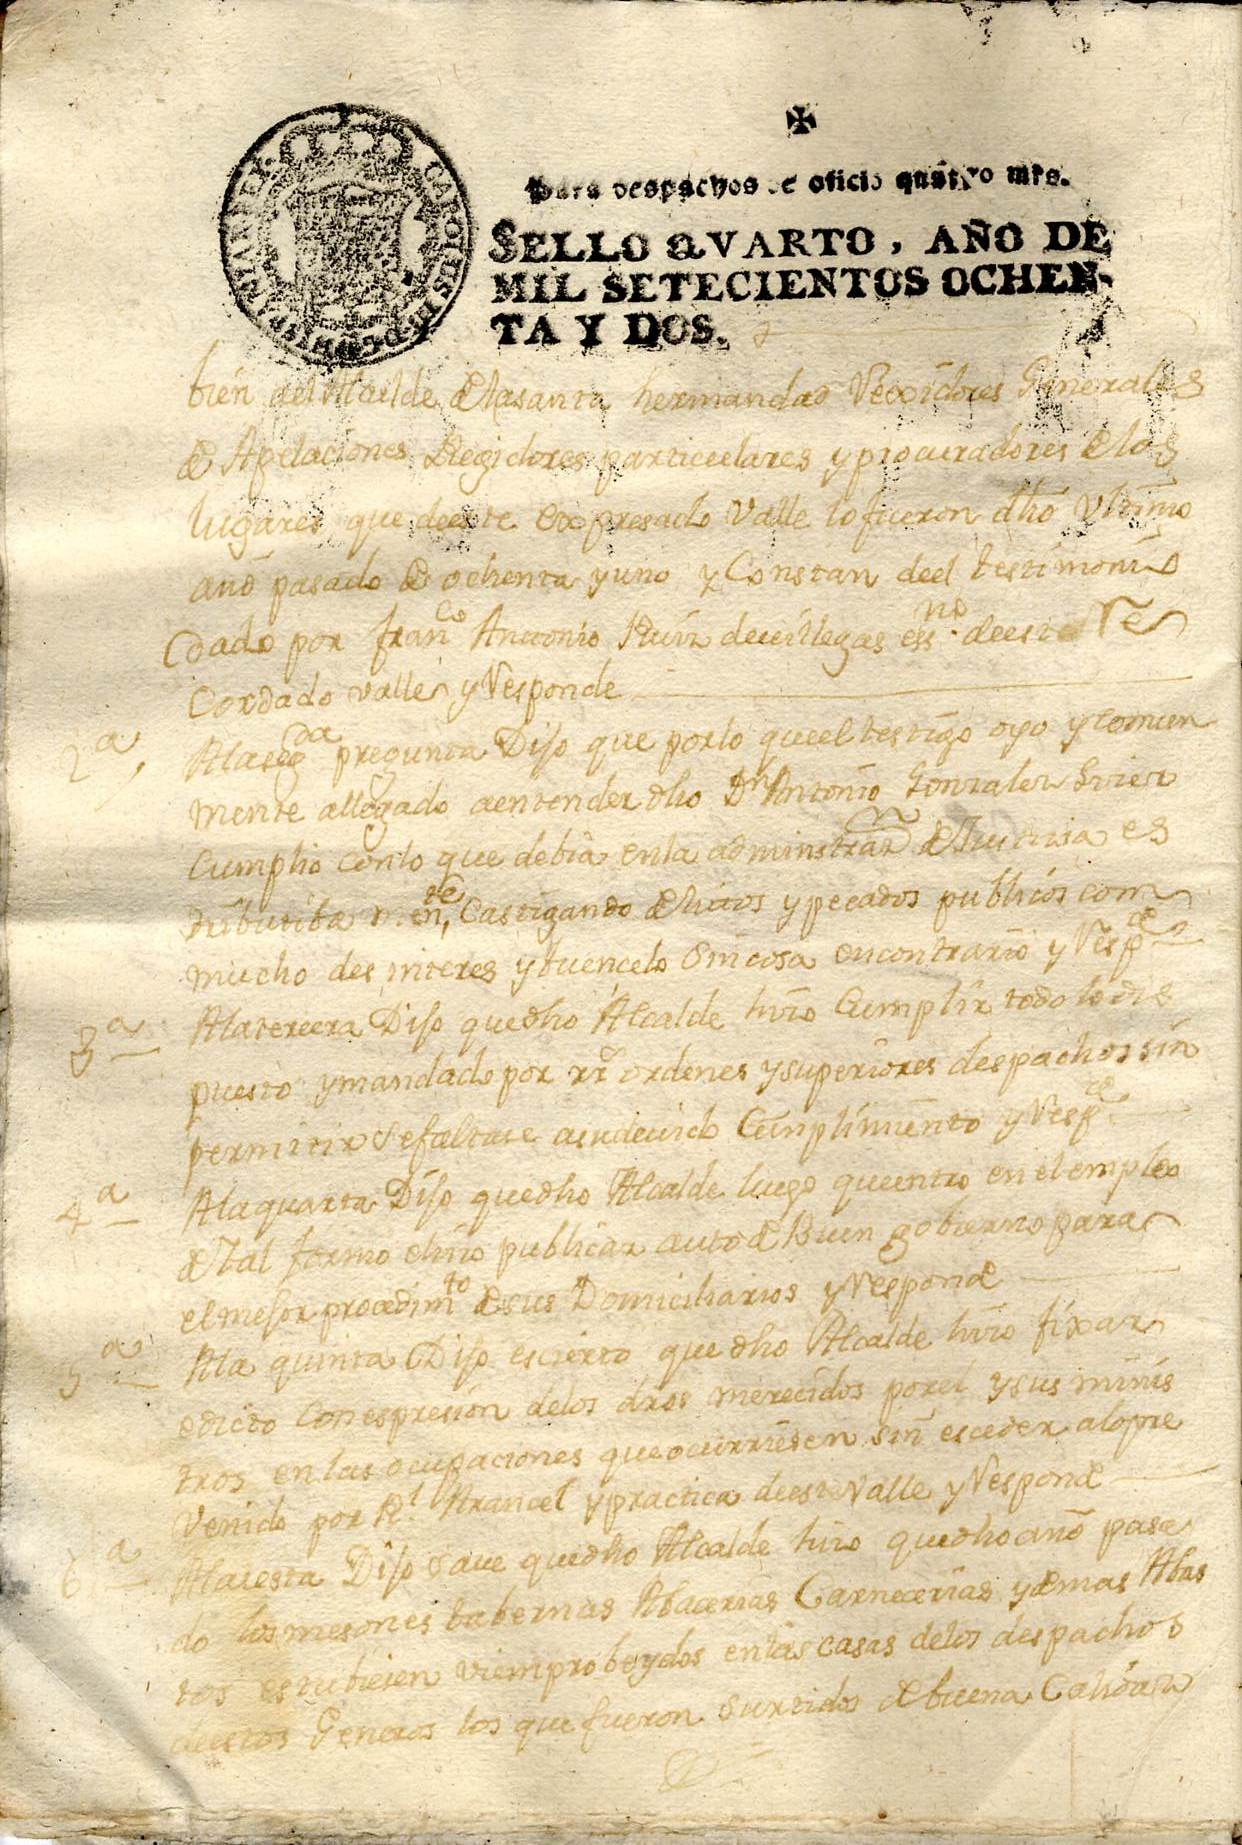 CAROLUS III D G HISPANIAR REX
Para despachos de oficio quatro mrs.
SELLO QVARTO, AÑO DE
MIL SETECIENTOS OCHEN-
TA Y DOS.
bien del Alcilde Delasanta hermandad Vexidores Generales
de Apelaciones Regidores particulares yprocuradores de los
lugares que deeste expresado Valle lo fueron dho Vltimo
año pasado de ochenta yuno y Constan deel testimonio
dado por franco Anttonio Ruiz devillegas essno deeste Re
Cordado valle y Responde
2a Alasegda pregunta Dijo que porlo queel testigo oyo y comun
mente allegado aentender dho Dn Antonio Gonzalez
Cumplio conlo que debia enla adminstran de Justisia es
tributiba mente, Castigando delictos ypecados publicos com
mucho desinteres ybuencelo sincosa encontrario y Respde
3a Alatercera Dijo quedho Alcalde hizo Cumplir todo lodis
puesto ymandado por rr ordenes ysuperiores despachos sin
permitir sefaltase asudevido Cumplimiento y Respde
4a Alaquarta Dijo quedho Alcalde luego queentro en el empleo
de tal formo ehizo publicar auto de Buen gobierno para
elmejor procedimto de sus Domiciliarios y Responde
5a Ala quinta Dijo escierto que dho Alcalde hizo fixar
edicto Con espresion delos dros merecidos porel ysus minis
tros en las ocupaciones que ocurriesen sin esceder alopre
venido por Rl Arancel ypractica deeste Valle y Responde
6a Alasesta Dijo save quedho Alcalde hizo quedho año pasa
do los mesones tabernas Abacerias Carnecerias ydemas Abas
tos estubiesen viemprobeydos enlas casas delos despachos
deestos Generos los que fueron surtidos de buena Calidad